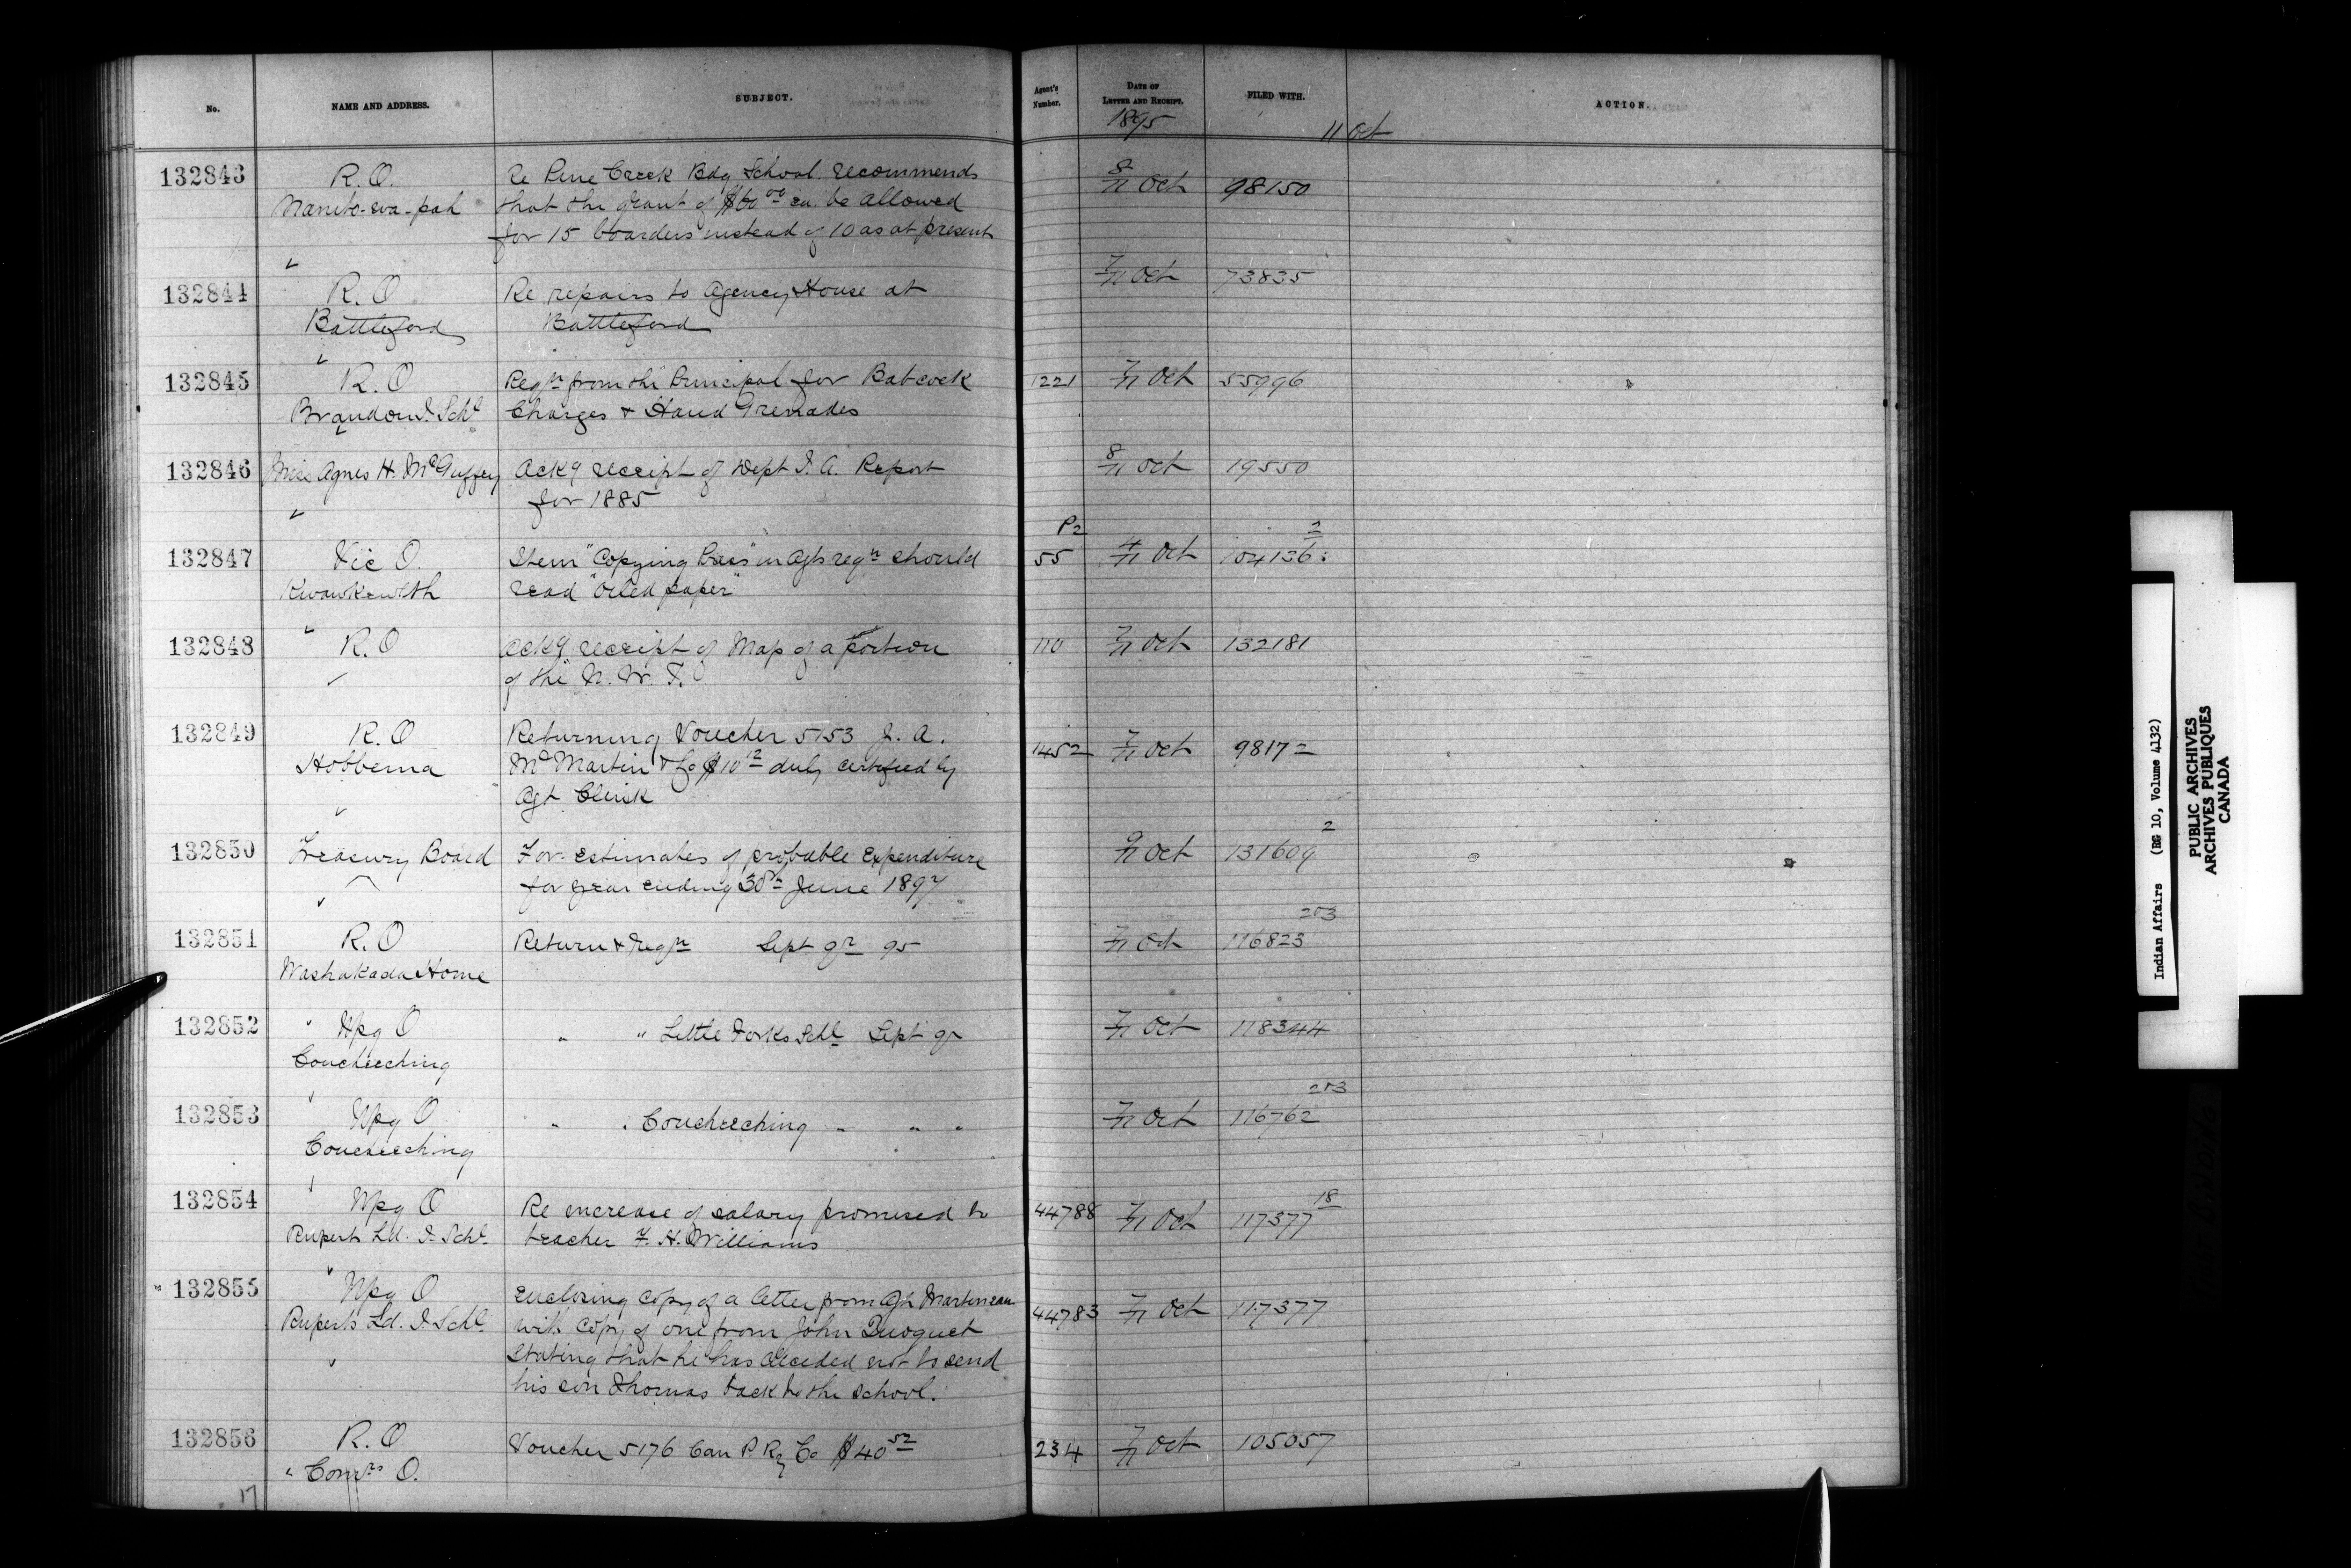 No. NAME AND ADDRESS. SUBJECT. Agent's Number. DATE OF LETTER AND RECEIPT. FILED WITH. ACTION.
1895 11 Oct
132843 R.O. Re Pine Creek Bdg School. recommends 8/11 Oct 98150
Manito-wa-pah that the grant of $60 00 ea. be allowed
for 15 boarders instead of 10 as at present
132844 R.O Re repairs to Agency House at 7/11 Oct 73835
Battleford Battleford
132845 R.O Reqn from the Principal for Babcock 1221 7/11 Oct 55996
Brandon I. Schl Charges & Hand Grenades
132846 Miss Agnes H. McGuffey Ackg receipt of Dept I.A. Report 8/11 Oct 19550
for 1885
P2 2
132847 Vic O. Item "Copying Press" in Agts reqn should 55 4/11 Oct 104136
Kwawkewlth read "Oiled paper"
132848 R.O Ackg receipt of Map of a portion 110 7/11 Oct 132181
of the N.W.T.
132849 R.O Returning Voucher 5153 J.A. 1452 7/11 Oct 98172
Hobbema McMartin & Co $10 12 duly certified by
Agt Clerk
2
132850 Treasury Board For estimates of probable Expenditure 9/11 Oct 131609
for year ending 30th June 1897
253
132851 R.O Return & reqn Sept qr 95 7/11 Oct 116823
Washakada Home
132852 " Wpg O " " Little Forks Schl Sept qr 7/11 Oct 118344
Coucheeching
253
132853 Wpg O " " Coucheeching " " " 7/11 Oct 116762
Coucheeching
18
132854 Wpg O Re increase of salary promised to 44788 7/11 Oct 117377
Ruperts Ld. I. Schl. teacher F. H. Williams
132855 Wpg O Enclosing copy of a letter from Agt Martineau 44783 7/11 Oct 117377
Ruperts Ld. I. Schl. with copy of one from John Duoquet
stating that he has decided not to send
his son Thomas back to the school.
132856 R.O Voucher 5176 Can P. Ry Co $40 52 234 7/11 Oct 105057
" Comrs O.
17
Indian Affairs (RG 10, Volume 4132)
PUBLIC ARCHIVES
ARCHIVES PUBLIQUES
CANADA